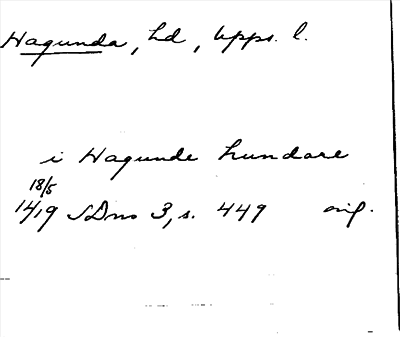 Hagunda, hd, Upps. l.
i Hagunde hundare
18/5
1419 SDns 3, s. 449 orig.